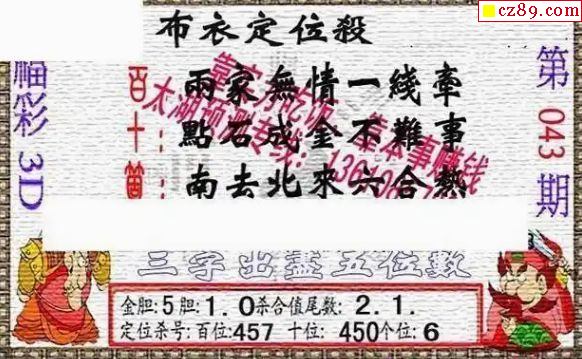 cz89.com
布衣定位殺
福彩 3D
第 043 期
百：兩家無情一綫牽
十：點石成金不難事
南去北來六合熱
三字出盡五位數
金胆:5胆:1.0杀合值尾数:2.1.
定位杀号:百位:457 十位:450个位:6